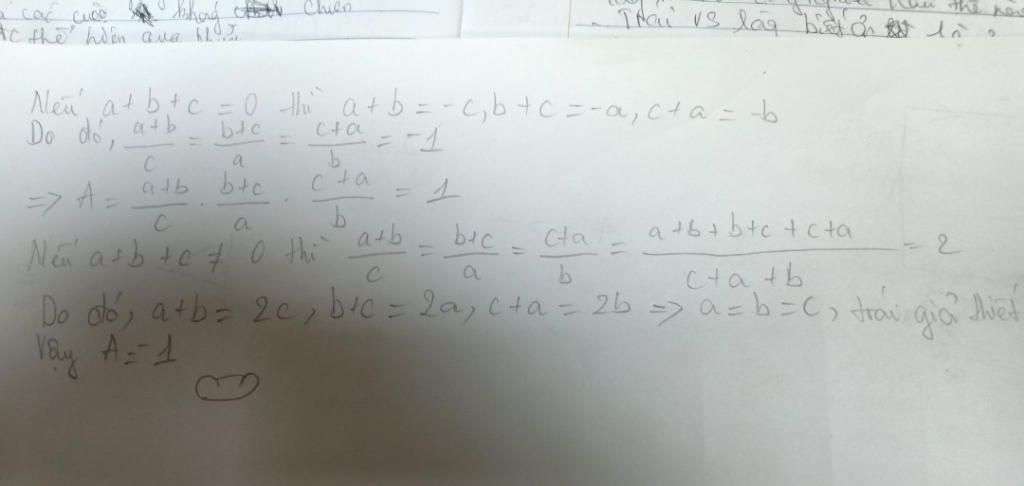 các cuộc khay chiến
thể hiện qua
Trái vs lag biết ơn là ?
Nếu a+b+c = 0 thì a+b = -c, b+c = -a, c+a = -b
Do đó, \frac{a+b}{c} = \frac{b+c}{a} = \frac{c+a}{b} = -1
=> A = \frac{a+b}{c} . \frac{b+c}{a} . \frac{c+a}{b} = 1
Nếu a+b+c ≠ 0 thì \frac{a+b}{c} = \frac{b+c}{a} = \frac{c+a}{b} = \frac{a+b+b+c+c+a}{c+a+b} = 2
Do đó, a+b = 2c, b+c = 2a, c+a = 2b => a=b=c, trái giả thiết
Vậy A = -1